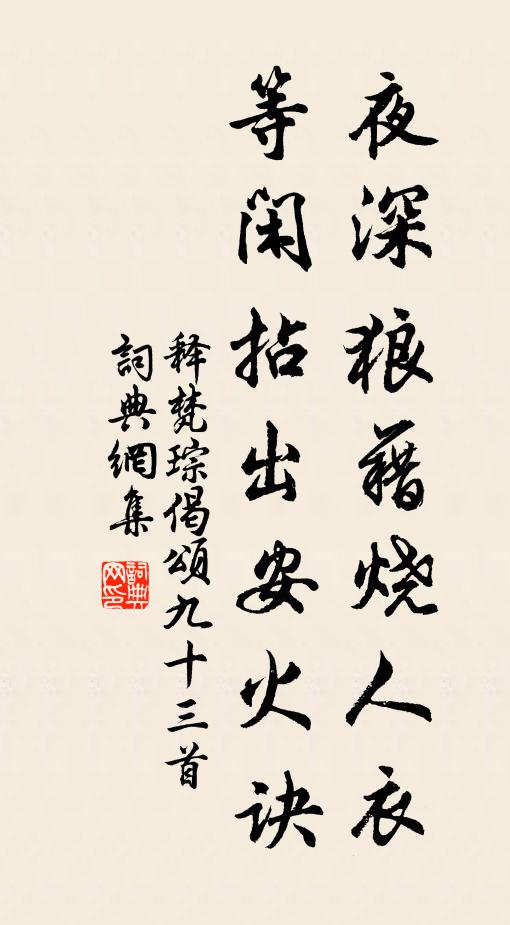 夜深狼藉烧人衣
等闲拈出安火诀
释梵琮偈頌九十三首
詞典網集
詞典
网印